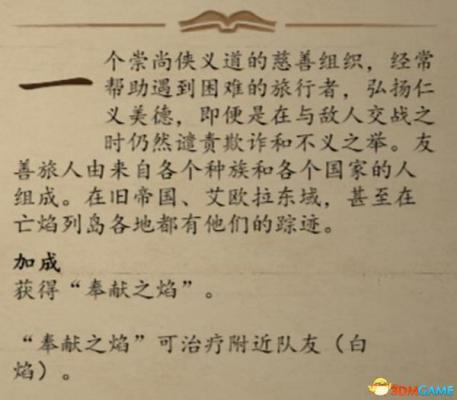 一个崇尚侠义道的慈善组织，经常
帮助遇到困难的旅行者，弘扬仁
义美德，即便是在与敌人交战之
时仍然谴责欺诈和不义之举。友
善旅人由来自各个种族和各个国家的人
组成。在旧帝国、艾欧拉东域，甚至在
亡焰列岛各地都有他们的踪迹。
加成
获得“奉献之焰”。
“奉献之焰”可治疗附近队友（白
焰）。
3DMGAME